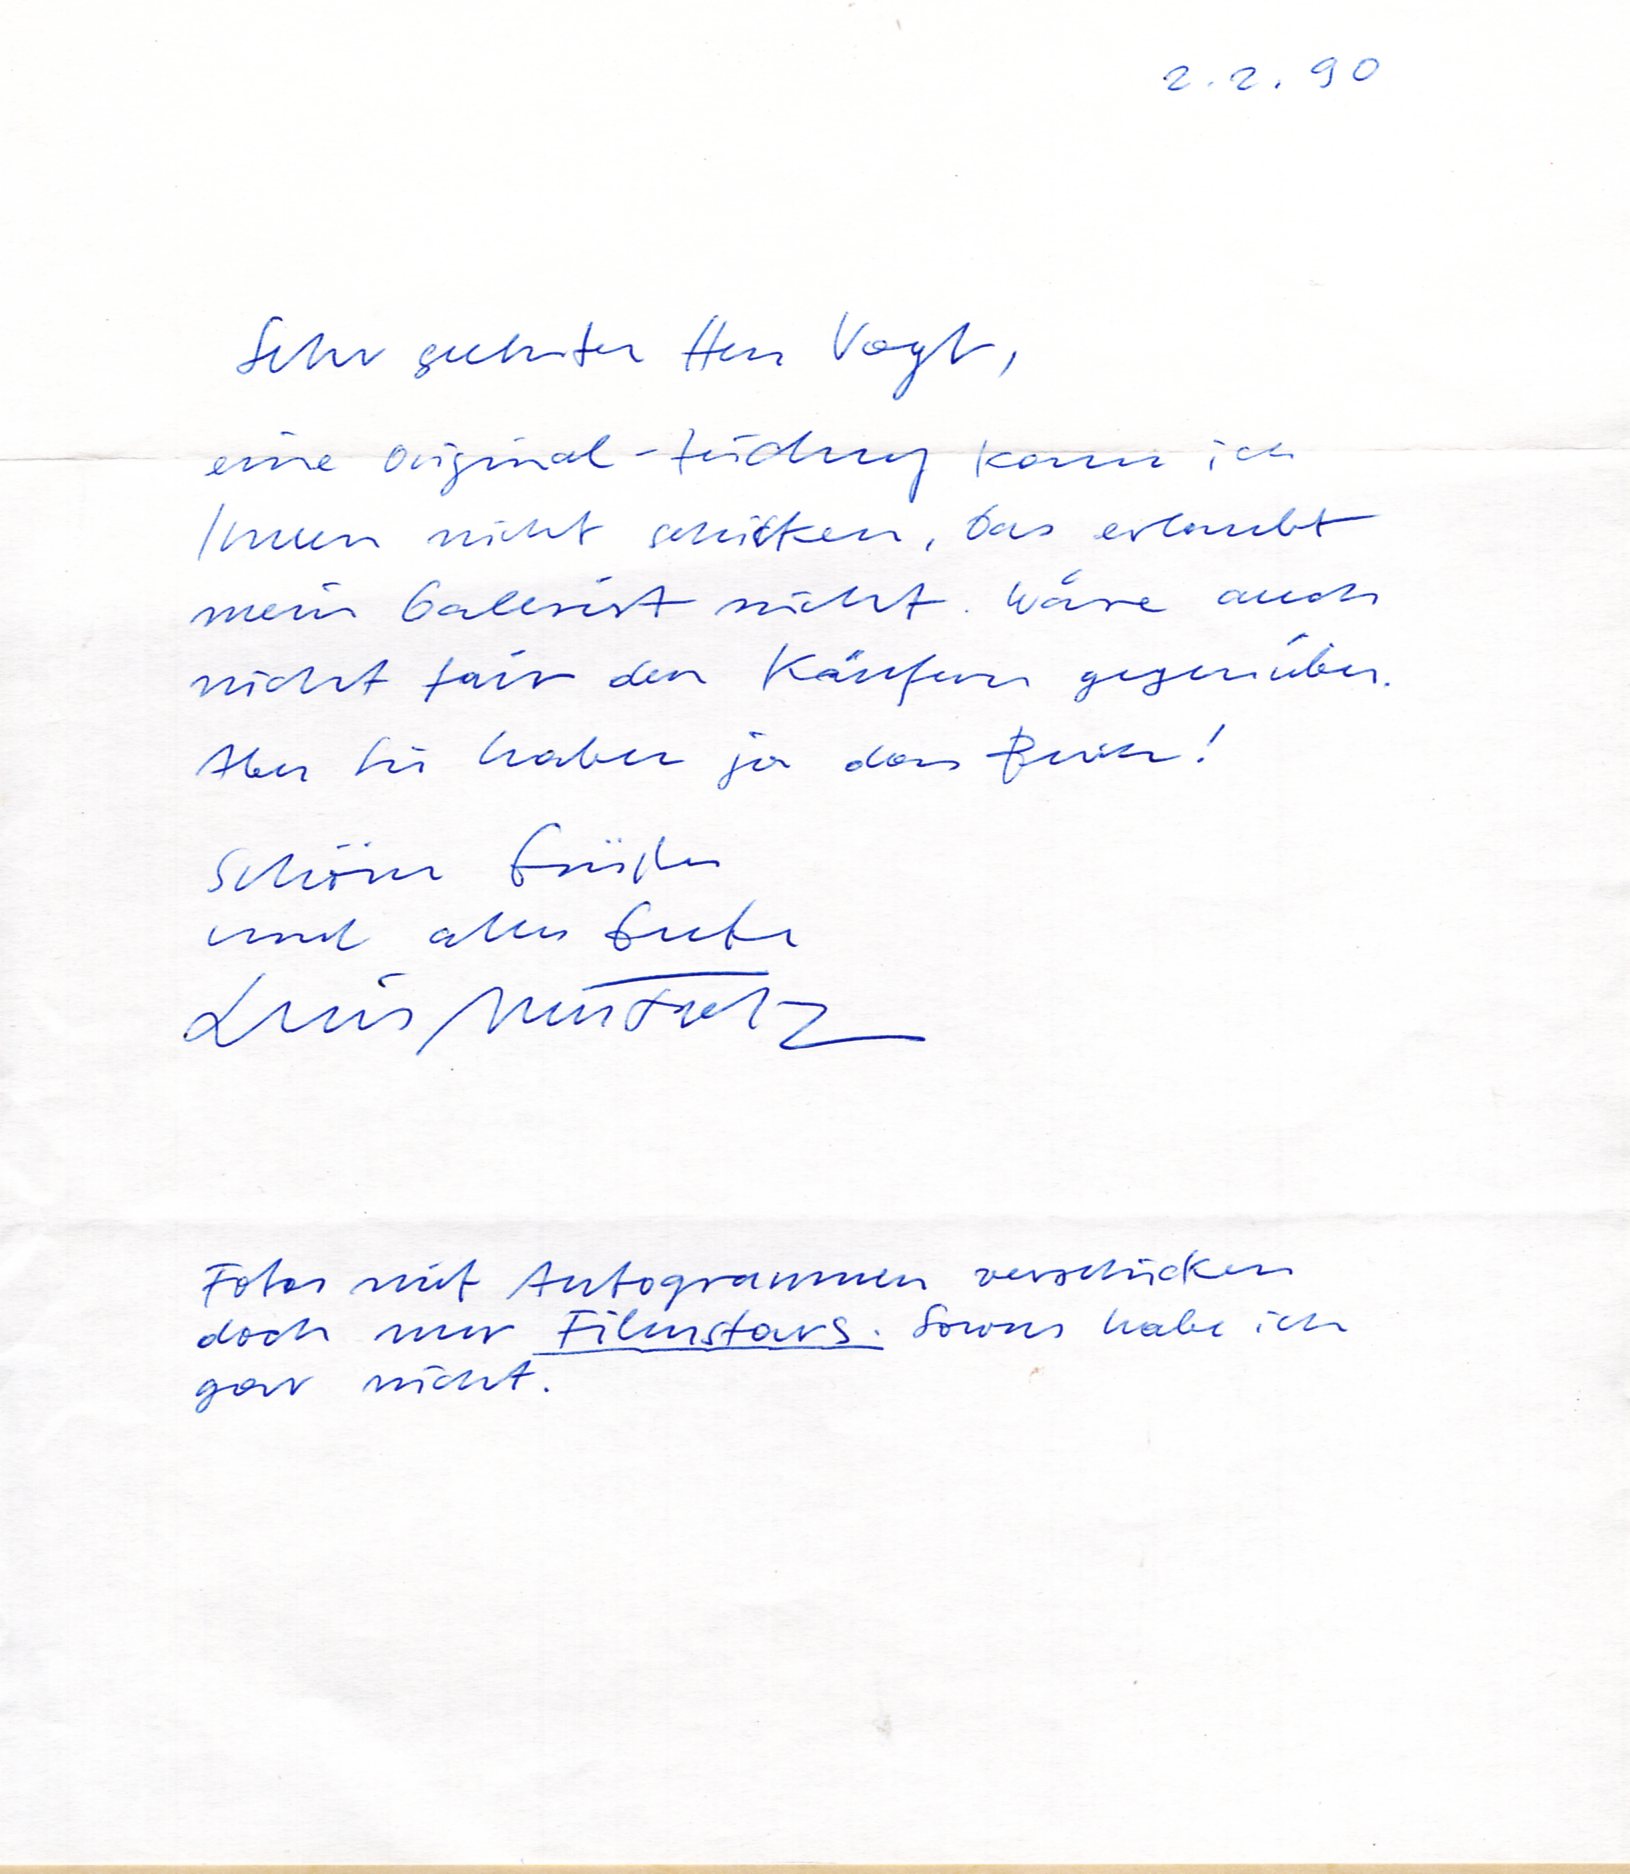 2.2.90
Sehr geehrter Herr Vogt,
eine Original-Zeichnung kann ich
Ihnen nicht schicken, das erlaubt
mein Gallerist nicht. Wäre auch
nicht fair den Käufern gegenüber.
Aber Sie haben ja das Buch!
Schöne Grüße
und alles Gute
Luis Murschetz
Fotos mit Autogrammen verschicken
doch nur Filmstars. Sowas habe ich
gar nicht.